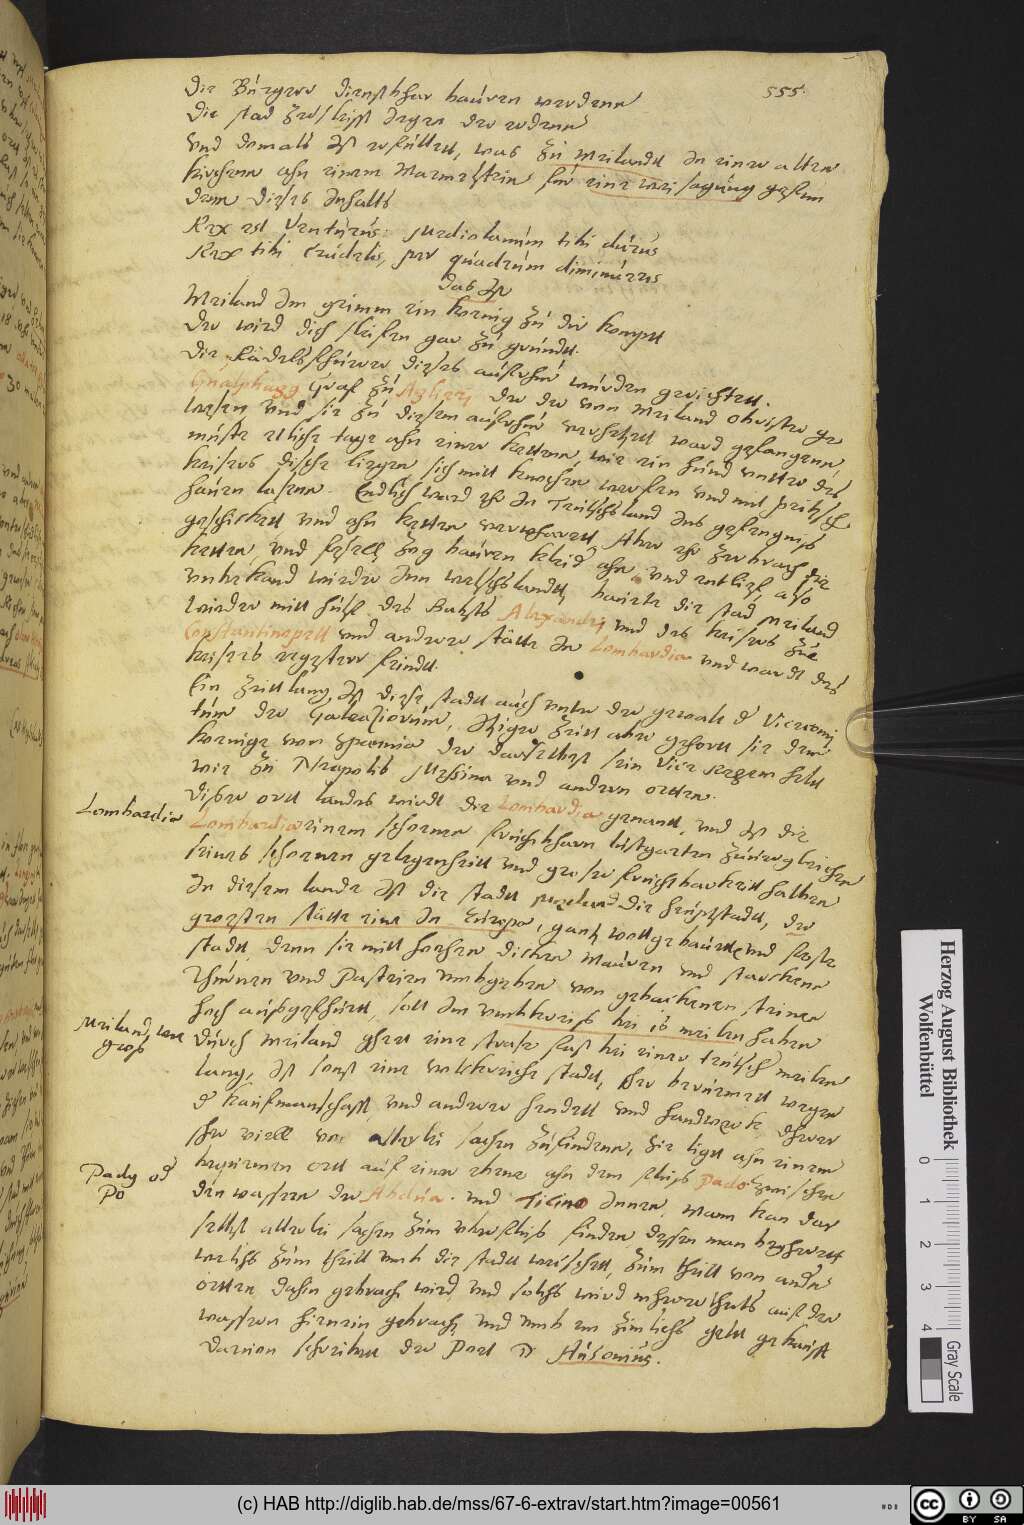 555.
Die Bürger dinsthaar hauren werdenn
Die stad
Und domals ist erfüllet, was zu Meilandt in einer alten
kirchenn ahn einem Marmelstein für eine weisagung gestan
denn dieses inhalts
Rex est Venturus: Mediolanum tibi durus
Rex tibi crudelis, per quadrum diminueris
Das ist
Meiland im grimm ein koenig zu dir kompt
Der wird dich gar zu grundt.
Die dieses aufruhr würden gerichtett.
Graf zu der der von Meiland obrister ge
wesen Und sie zu diesem aufruhr verhetzet ward gefangenn
müste etliche tage ahn einer kettenn, wie ein hund unter des
keisers dische liegen, sich mitt knochen werfen und mit peitsch
hauen lasenn. Endlich ward ehr in Teutschland ins gefengnis
geschickett und ahn ketten verwharett, Aber ehr zerbrach die
ketten, und zog bauren kleid ahn und entlief, also
unbekand wieder inn welschlandt, bawete die stad Meiland
wieder mitt hülf des Babsts Alexandri und des keisers zur
Constantinopell und anderer stätte in Lombardia und wardt des
keisers ergster feindt.
Ein zeitt lang ist diese stadt auch unter der gewalt d' Vicecomi
tum der Galeaziorum, itziger zeitt aber gehort sie dem
koenige von Spannia der daselbst sein Vice regem helt
wie zu Neapolis Messina und andern orten.
Diser ort landes wirdt die Lombardia genant, und ist die
Lombardia
Lombardia einem schoenen fruchtbarn lustgarten zuuergleichen
seines schoenen gelegenheitt und groser fruchtbarkeitt halben
In diesem lande ist die stadt Meiland die heuptstadt, der
groesten stätte eine in Europa, gantz wollgebauett und feste
stadt, denn sie mitt hoehen dicken Mauren und starcken
Thürnen und Pasteien umbgeben von gebackenen steinen
hoch aufgeführtt, soll im umbkreiß bei 18 meilen haben
Meiland, wie
groß
Durch Meiland ghett eine strase fast bei einer teutsch meilen
lang, ist sonst eine volckreiche stadt, sehr beruemett wegen
d' kaufmanschafft, und anderer hendell und handwerck, deren
sehr viell von allerlei sachen zufindenn, Sie ligt ahn einem
bequemen ort auf einer ebene ahn dem flus Pado zwischen
Pady od
Po
den wassern der Abdua. und Ticino innen, Mann kan dar
selbst allerlei sachen zum uberflus finden, dessen man
welchs zum theill umb die stadt wechsett, zum theill von andn
orten dahin gebracht wird, und solchs wird mherertheils auf den
wassern hienein gebracht, und umb ein zimlichs gelt gekauft
Darvon schreibet der Poet D. Ausonius.
Herzog August Bibliothek
Wolfenbüttel
0 1 2 3 4
Gray Scale
(c) HAB http://diglib.hab.de/mss/67-6-extrav/start.htm?image=00561
BY SA